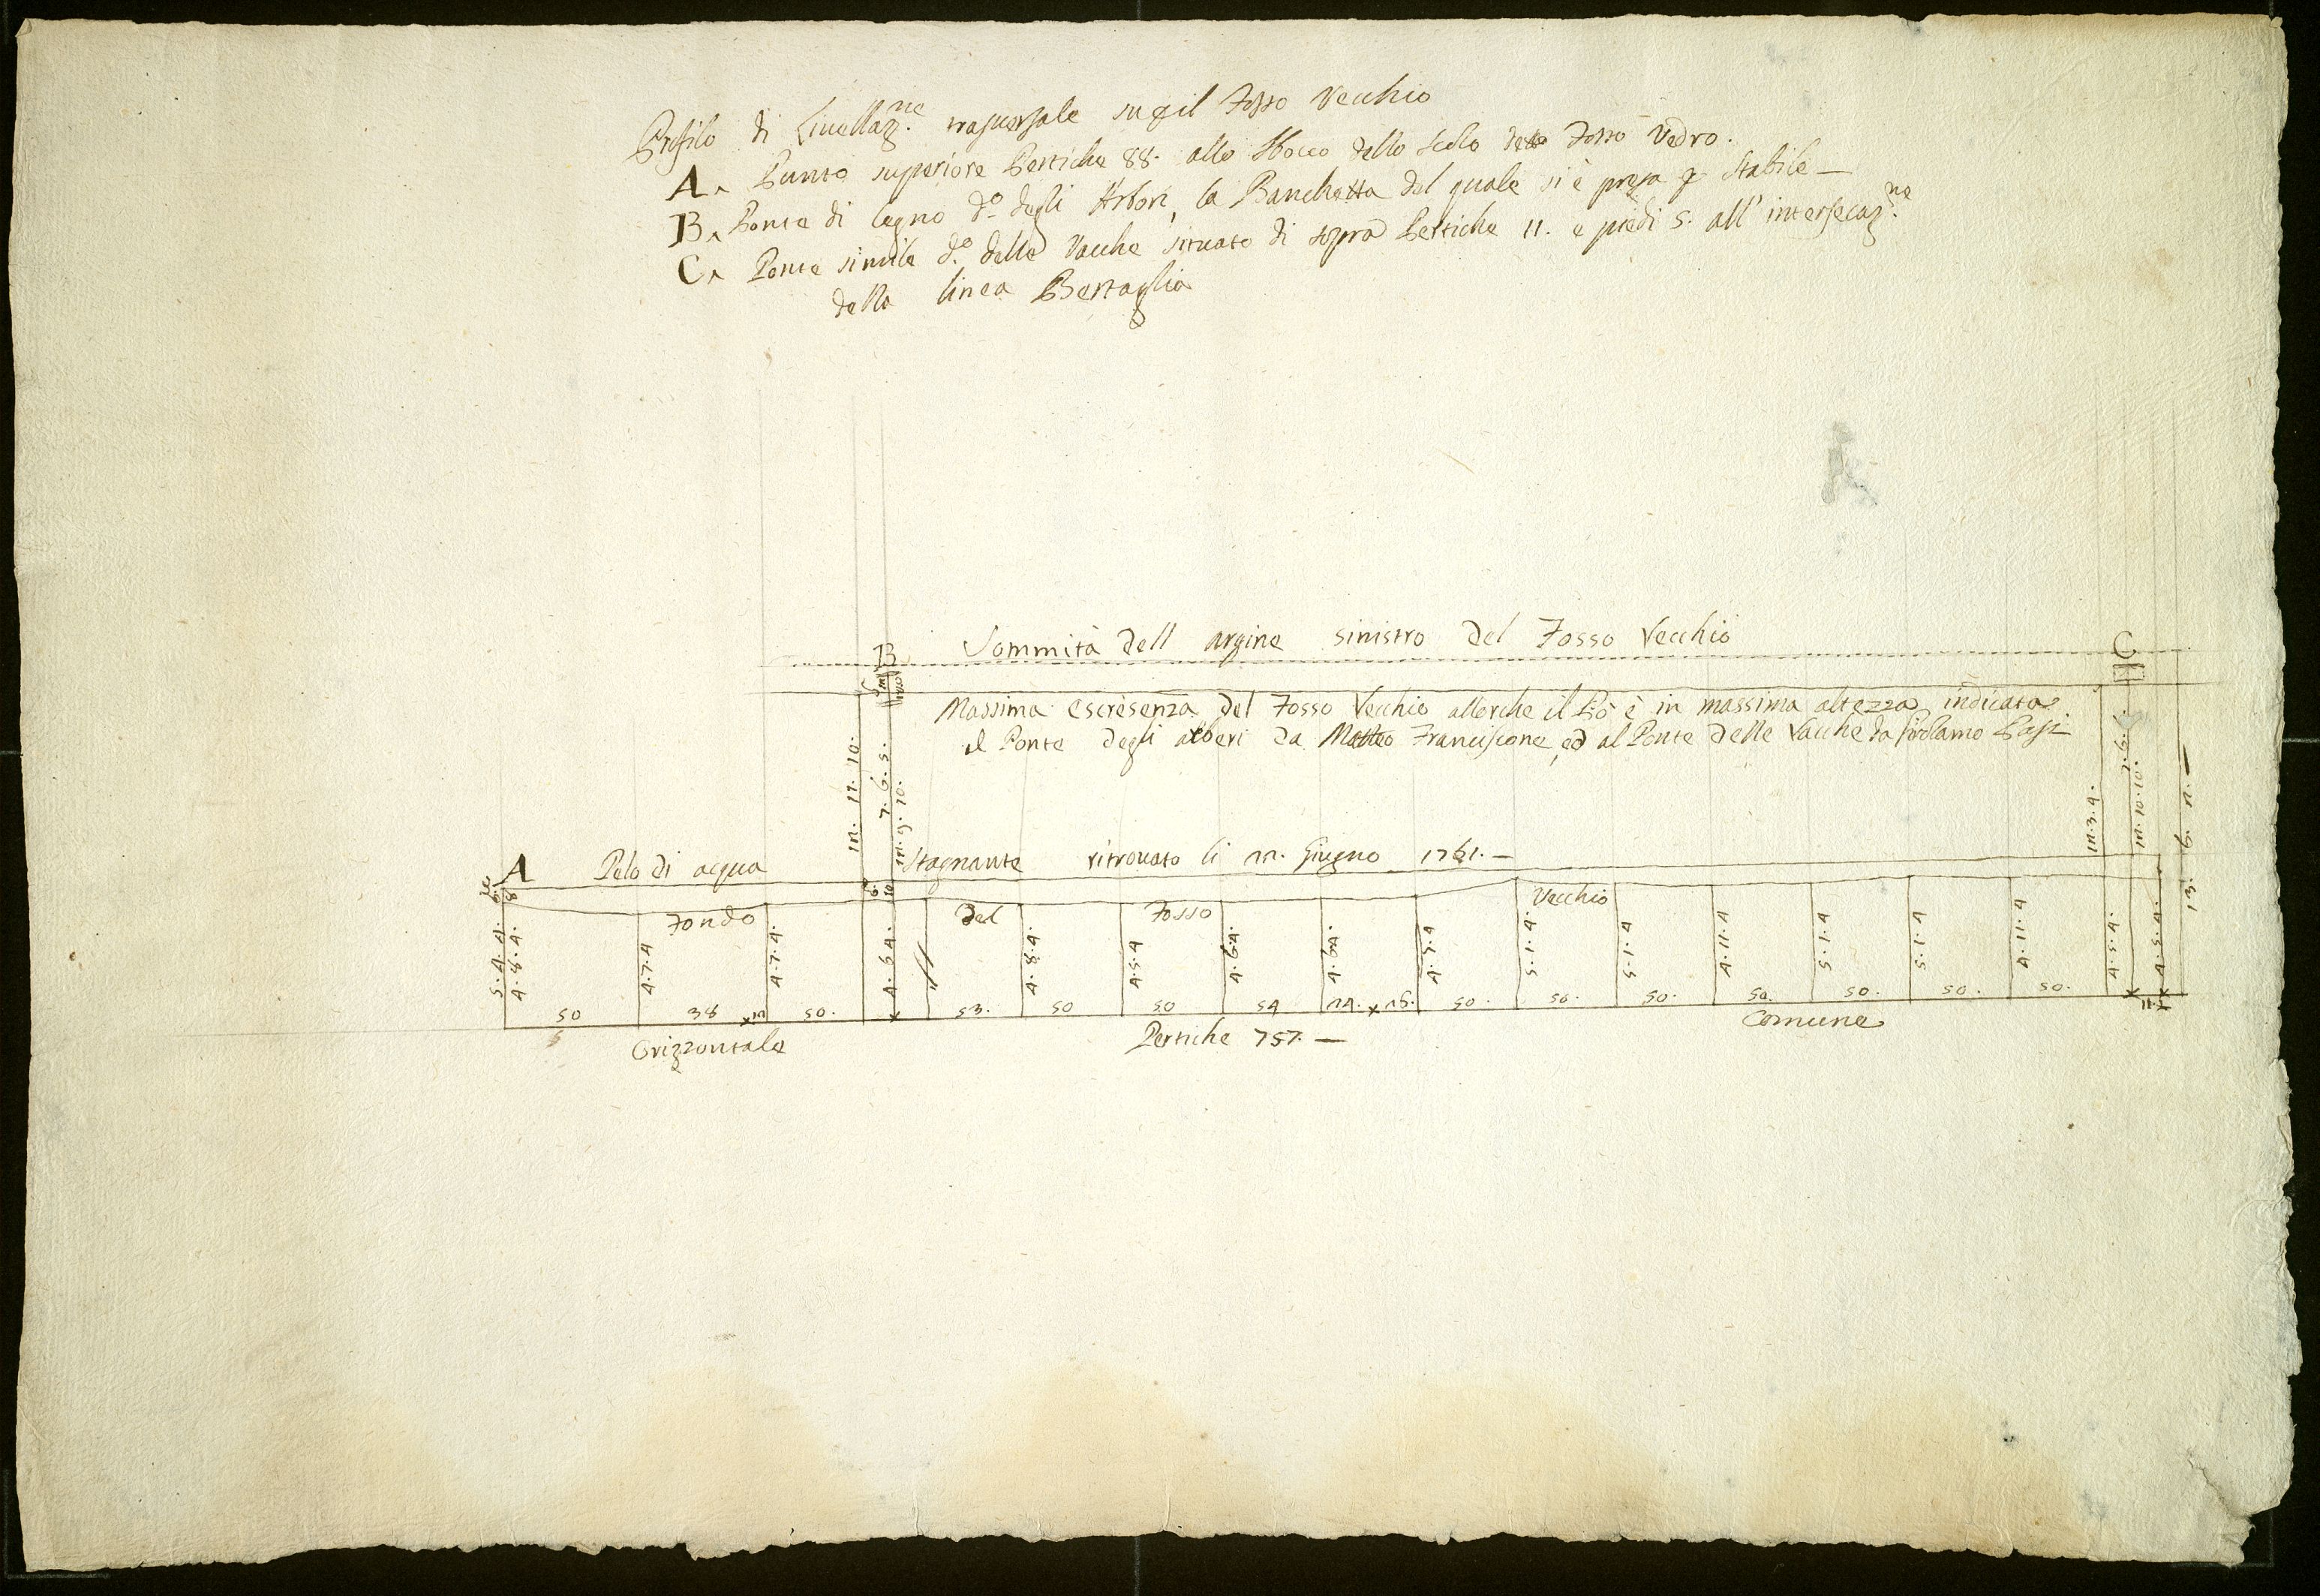 Profilo di Livellaz.ne trasversale sugil Fosso Vecchio
A. Punto superiore Pertiche 88. allo Sbocco dello Scolo detto Fosso Vedro.
B. Ponte di legno d.o degli Arbori, la Banchetta del quale si è presa p Stabile —
C. Ponte simile d.o delle Vacche situato di sopra Pertiche 11. e piedi 5. all' intersecaz.ne
della linea Bertaglia
Sommità dell argine sinistro del Fosso Vecchio
B
C
Massima escresenza del Fosso Vecchio allorche il Pò è in massima altezza indicata
al Ponte degli alberi da Matteo Franciscone, ed al Ponte delle Vacche da Girolamo Pasi
7. 6. 5.
A Pelo di acqua Stagnante ritrovato li 12. Giugno 1761. —
Fondo del Fosso Vecchio
5. 4. 4. 4. 8. 4. 4. 7. 4 4. 7. 4. 4. 6 4. 4. 8. 4. 4. 5. 4 4. 6. 4. 4. 6. 4. 4. 7. 4 5. 1. 4. 5. 1. 4 4. 11. 4 5. 1. 4 5. 1. 4 4. 11. 4 4. 5. 4. 4. 5. 4.
50 38 12 50. 53. 50 50 54 24. 26. 50. 50. 50. 50. 50. 50. 50.
Orizzontale Pertiche 757. — Comune